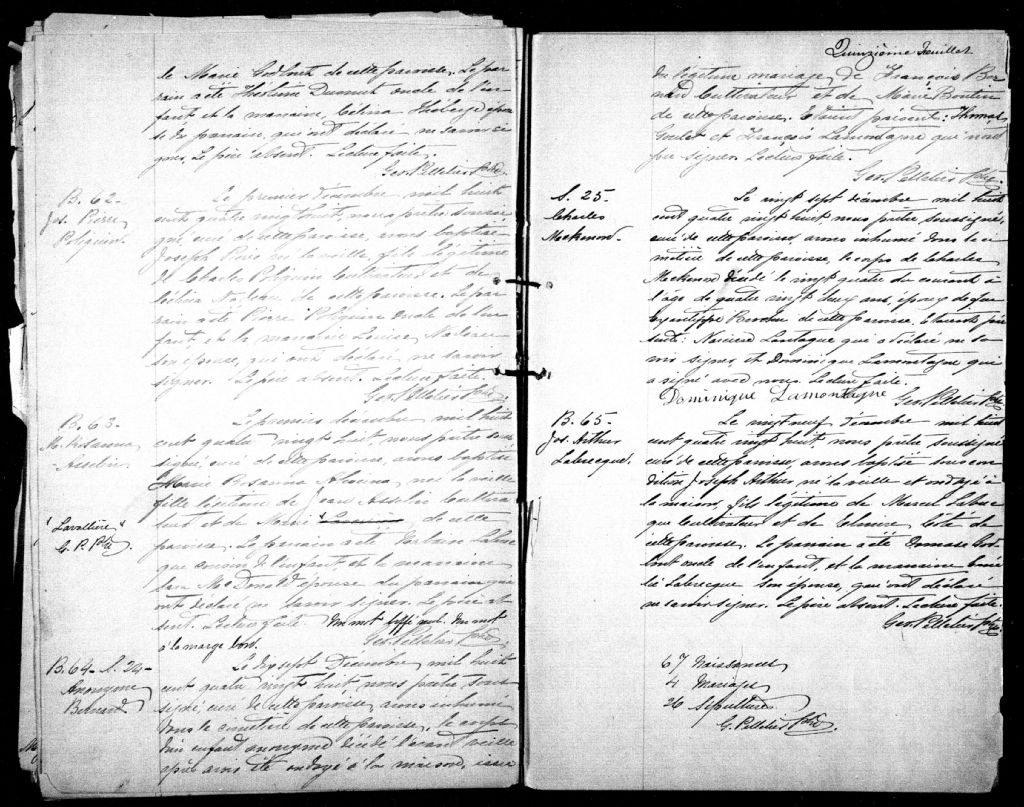 de Marie Godbout de cette paroisse. Le par
rain a été Onésime Dumont oncle de l'en
fant et la marraine, Célina Théberge épouse
du parrain, qui ont déclaré ne savoir si
gner. Le père absent. Lecture faite.
Geo. Pelletier Ptre
B. 62-
Jos. Pierre
Poliquin.
Le premier Décembre mil huit
cent quatre vingt huit, nous prêtre soussi
gné, curé de cette paroisse, avons baptisé
Joseph Pierre né la veille, fils légitime
de Charles Poliquin Cultivateur et de
Nadeau de cette paroisse. Le par
rain a été Pierre Poliquin oncle de l'en
fant et la marraine Louise Nadeau
son épouse, qui ont déclaré ne savoir
signer. Le père absent. Lecture faite.
Geo. Pelletier Ptre
B. 63-
M. Rosanna
Asselin
Le premier décembre mil huit
cent quatre vingt huit, nous prêtre sous
signé, curé de cette paroisse, avons baptisé
Marie Rosanna née la veille
fille légitime de Jean Asselin Cultiva
teur et de Marie de cette
paroisse. Le parrain a été Labrec
que cousin de l'enfant et la marraine
McDonald épouse du parrain qui
ont déclaré ne savoir signer. Le père ab
sent. Lecture faite. Un mot biffé nul. Un mot
à la marge bon.
Geo. Pelletier Ptre
"Lavallière"
G. P. Ptre
B. 64- S. 24-
Anonyme
Bernard
Le dix sept Décembre mil huit
cent quatre vingt huit, nous prêtre, sous
signé, curé de cette paroisse avons inhumé
dans le cimetière de cette paroisse, le corps
d'un enfant anonyme décédé l'avant veille
après avoir été ondoyé à la maison, issu
Quinzième Feuillet
du légitime mariage de François Ber
nard Cultivateur et de Marie Boutin
de cette paroisse. Etaient présents: Thomas
Goulet et François Lamontagne qui n'ont
pu signer. Lecture faite.
Geo. Pelletier Ptre
S. 25-
Charles
Le vingt sept décembre mil huit
cent quatre vingt huit, nous prêtre soussigné,
curé de cette paroisse, avons inhumé dans le ci
metière de cette paroisse, le corps de Charles
décédé le vingt quatre du courant à
l'âge de quatre vingt deux ans, époux de feue
de cette paroisse. Etaient pré
sents: Lamontagne qui a déclaré ne sa
voir signer et Dominique Lamontagne qui
a signé avec nous. Lecture faite.
Dominique Lamontagne Geo. Pelletier Ptre
B. 65-
Jos. Arthur
Labrecque.
Le vingt neuf Décembre mil huit
cent quatre vingt huit, nous prêtre soussigné
curé de cette paroisse, avons baptisé sous con
dition Joseph Arthur né la veille et ondoyé à
la maison, fils légitime de Marcel Labrec
que Cultivateur et de Elmire Côté de
cette paroisse. Le parrain a été God
bout oncle de l'enfant, et la marraine
Labrecque son épouse, qui ont déclaré
ne savoir signer. Le père absent. Lecture faite.
Geo. Pelletier Ptre
67 Naissances
4 Mariages
26 Sépultures
G. Pelletier Ptre.